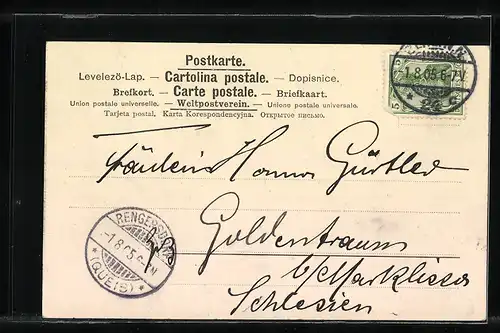 Postkarte.
Levelezö-Lap. — Cartolina postale. — Dopisnice.
Brefkort. — Carte postale. — Briefkaart.
Union postale universelle. — Weltpostverein. — Unione postale universale.
Tarjeta postal. Karta Korespondencyjna. Открытое письмо.
-1.8.05.6-7V.
5
Fräulein Hanna Gürtler
RENGERSDORF
-1.8.05.6-7V.
* (QUEIS) *
Goldentraum
b/Marklissa
Schlesien